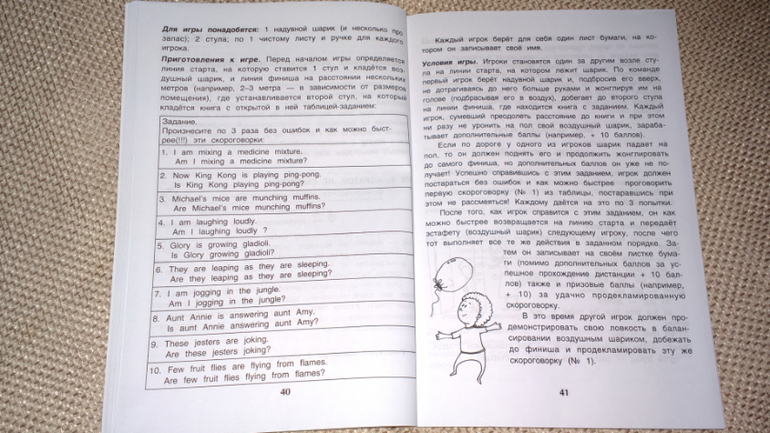 Для игры понадобятся: 1 надувной шарик (и несколько про
запас); 2 стула; по 1 чистому листу и ручке для каждого
игрока.
Приготовления к игре. Перед началом игры определяется
линия старта, на которую ставится 1 стул и кладётся воз-
душный шарик, и линия финиша на расстоянии нескольких
метров (например, 2–3 метра — в зависимости от размеров
помещения), где устанавливается второй стул, на который
кладётся книга с открытой в ней таблицей-заданием:
Задание.
Произнесите по 3 раза без ошибок и как можно быст-
рее(!!!) эти скороговорки:
1. I am mixing a medicine mixture.
Am I mixing a medicine mixture?
2. Now King Kong is playing ping-pong.
Is King Kong playing ping-pong?
3. Michael's mice are munching muffins.
Are Michael's mice munching muffins?
4. I am laughing loudly.
Am I laughing loudly ?
5. Glory is growing gladioli.
Is Glory growing gladioli?
6. They are leaping as they are sleeping.
Are they leaping as they are sleeping?
7. I am jogging in the jungle.
Am I jogging in the jungle?
8. Aunt Annie is answering aunt Amy.
Is aunt Annie answering aunt Amy?
9. These jesters are joking.
Are these jesters joking?
10. Few fruit flies are flying from flames.
Are few fruit flies flying from flames?
40
Каждый игрок берёт для себя один лист бумаги, на ко-
тором он записывает своё имя.
Условия игры. Игроки становятся один за другим возле сту-
ла на линии старта, на котором лежит шарик. По команде
первый игрок берёт надувной шарик и, подбросив его вверх,
не дотрагиваясь до него больше руками и жонглируя им на
голове (подбрасывая его в воздух), добегает до второго стула
на линии финиша, где находится книга с заданием. Каждый
игрок, сумевший преодолеть расстояние до книги и при этом
ни разу не уронить на пол свой воздушный шарик, зараба-
тывает дополнительные баллы (например, + 10 баллов).
Если по дороге у одного из игроков шарик падает на
пол, то он должен поднять его и продолжить жонглировать
до самого финиша, но дополнительных баллов он уже не по-
лучает! Успешно справившись с этим заданием, игрок должен
постараться без ошибок и как можно быстрее проговорить
первую скороговорку (№ 1) из таблицы, постаравшись при
этом не рассмеяться! Каждому даётся на это по 3 попытки.
После того, как игрок справится с этим заданием, он как
можно быстрее возвращается на линию старта и передаёт
эстафету (воздушный шарик) следующему игроку, после чего
тот выполняет все те же действия в заданном порядке. За-
тем он записывает на своём листке бума-
ги (помимо дополнительных баллов за ус-
пешное прохождение дистанции + 10 бал-
лов) также и призовые баллы (например,
+ 10) за удачно продекламированную
скороговорку.
В это время другой игрок должен про-
демонстрировать свою ловкость в балан-
сировании воздушным шариком, добежать
до финиша и продекламировать эту же
скороговорку (№ 1).
41